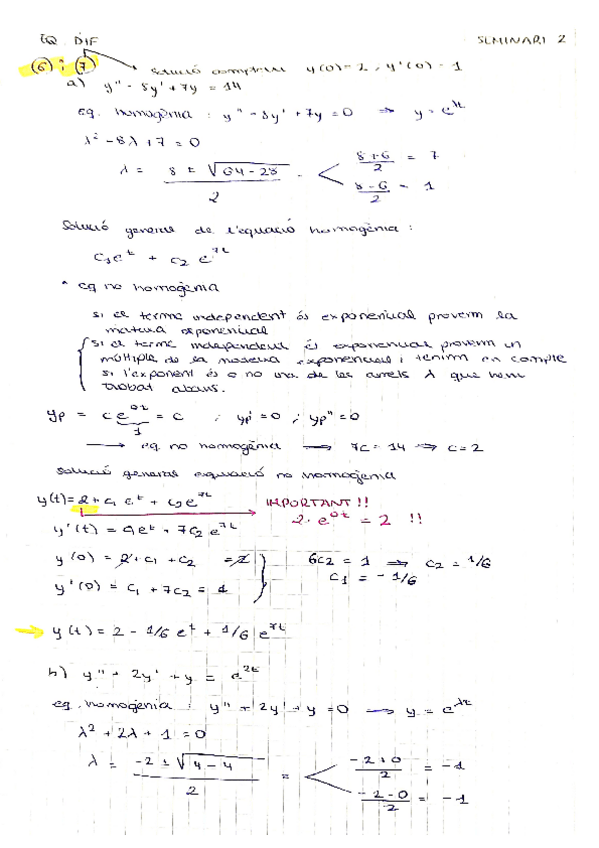 EQ. DIF SEMINARI 2
(6) i (7) solució complint y(0)=2, y'(0)=1
a) y'' - 8y' + 7y = 14
eq. homogènia : y'' - 8y' + 7y = 0 ⇒ y = e^λt
λ² - 8λ + 7 = 0
λ = (8 ± √(64 - 28))/2 = < (8+6)/2 = 7
(8-6)/2 = 1
Solució general de l'equació homogènia :
c₁e^t + c₂ e^7t
* eq no homogènia
si el terme independent és exponencial provem la
mateixa exponencial
si el terme independent és exponencial provem un
múltiple de la mateixa exponencial i tenim en compte
si l'exponent és o no una de les arrels λ que hem
trobat abans.
yp = c e^0t = c ; yp' = 0 ; yp'' = 0
1
→ eq no homogènia → 7c = 14 ⇒ c = 2
solució general equació no homogènia
y(t) = 2 + c₁ e^t + c₂ e^7t IMPORTANT !!
2 · e^0t = 2 !!
y'(t) = c₁e^t + 7c₂ e^7t
y(0) = 2 + c₁ + c₂ = 2 6c₂ = 1 ⇒ c₂ = 1/6
c₁ = -1/6
y'(0) = c₁ + 7c₂ = 1
→ y(t) = 2 - 1/6 e^t + 1/6 e^7t
b) y'' + 2y' + y = e^2t
eq. homogènia : y'' + 2y' + y = 0 → y = e^λt
λ² + 2λ + 1 = 0
λ = (-2 ± √(4 - 4))/2 = < (-2+0)/2 = -1
(-2-0)/2 = -1